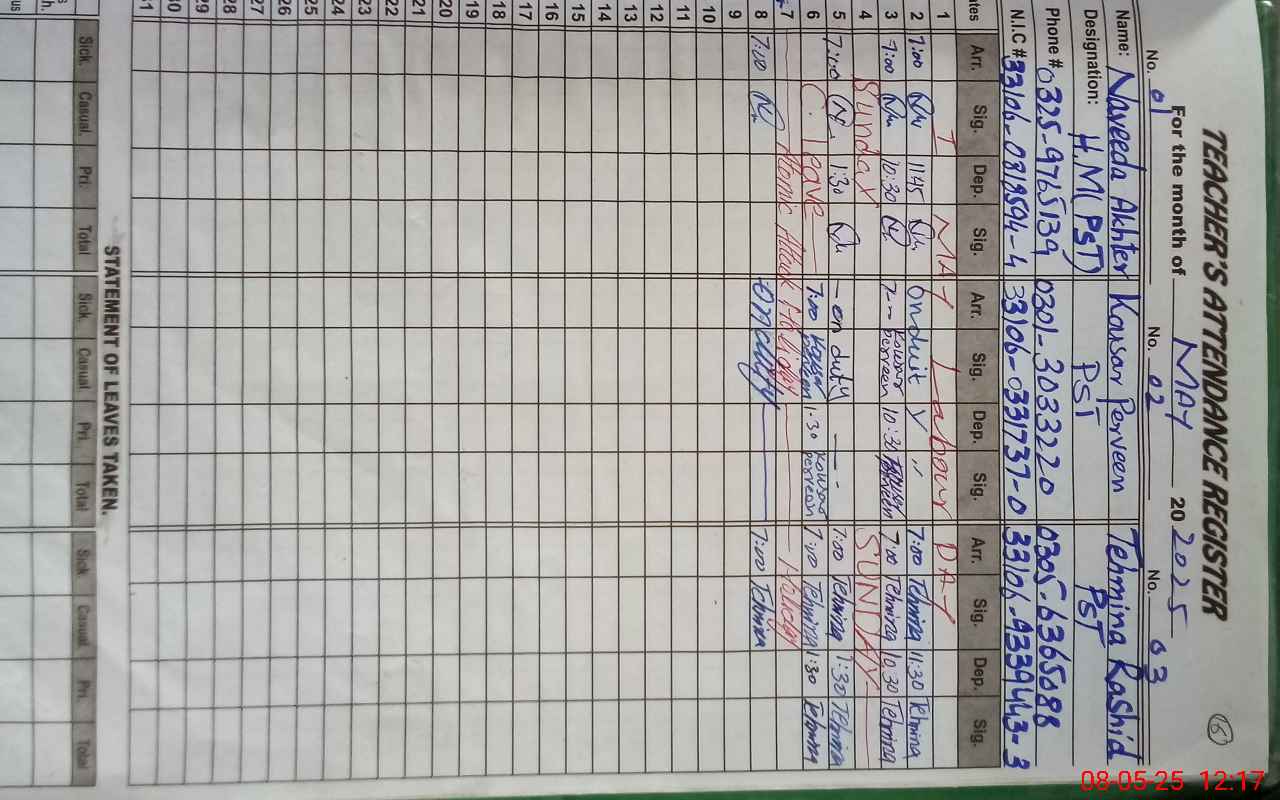 TEACHER'S ATTENDANCE REGISTER
For the month of MAY 2025
No. 01 No. 02 No. 03
Name: Naveeda Akhter Kausar Perveen Tehmina Rashid
Designation: H.M(PST) PST PST
Phone # 0325-9765139 0301-3033220 0305-6365088
N.I.C # 33106-0819594-4 33106-0331737-0 33106-9339443-3
ates Arr. Sig. Dep. Sig. Arr. Sig. Dep. Sig. Arr. Sig. Dep. Sig.
1 I MAY Labour DAY
2 7:00 11:45 7:00 Tehmina 11:30 Tehmina
3 7:00 10:30 7-- Kowsar Perveen 10:30 Perveen 7:00 Tehmina 10:30 Tehmina
4 Sunday SUNDAY
5 7:00 1:30 on duty 7:00 Tehmina 1:30 Tehmina
6 C. leave 7:00 Perveen 1:30 Kowsar Perveen 7:00 Tehmina 1:30 Tehmina
7 Atomic Attack Holiday Holiday
8 7:00 7:00 Tehmina
9
10
11
12
13
14
15
16
17
18
19
20
21
22
23
24
25
26
27
28
29
30
31
STATEMENT OF LEAVES TAKEN.
Sick. Casual. Pri. Total Sick. Casual Pri. Total Sick Casual Pri. Total
h.
us
08-05-25 12:17